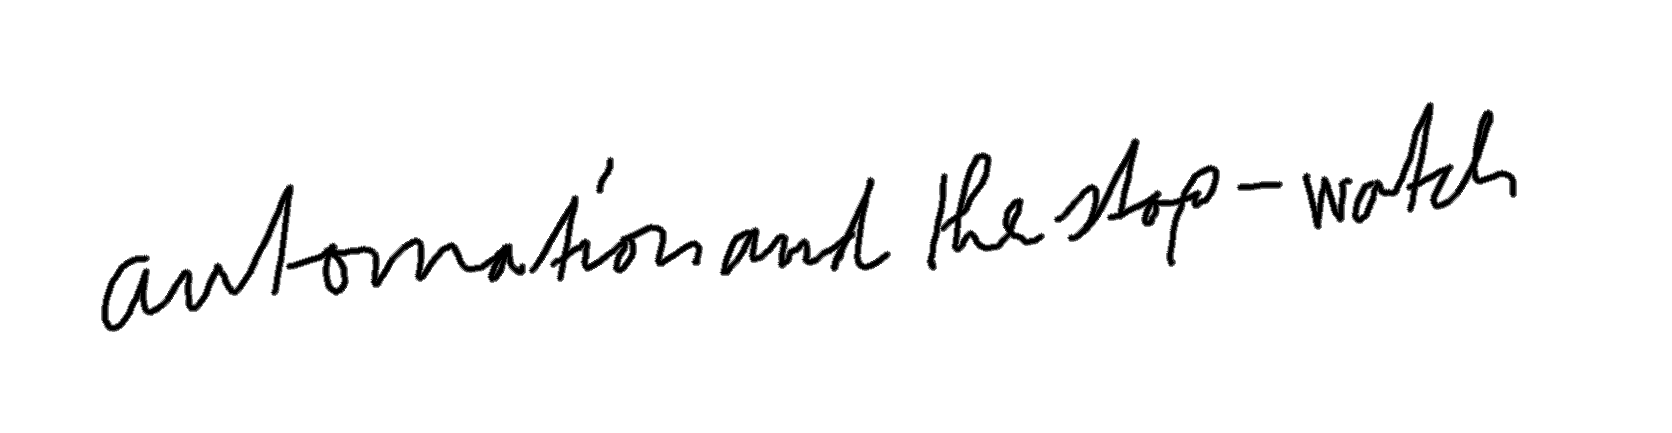 automation and the stop-watch